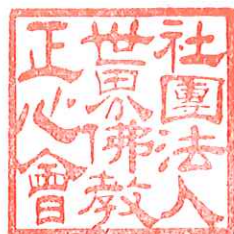 社團法人
世界佛教
正心會